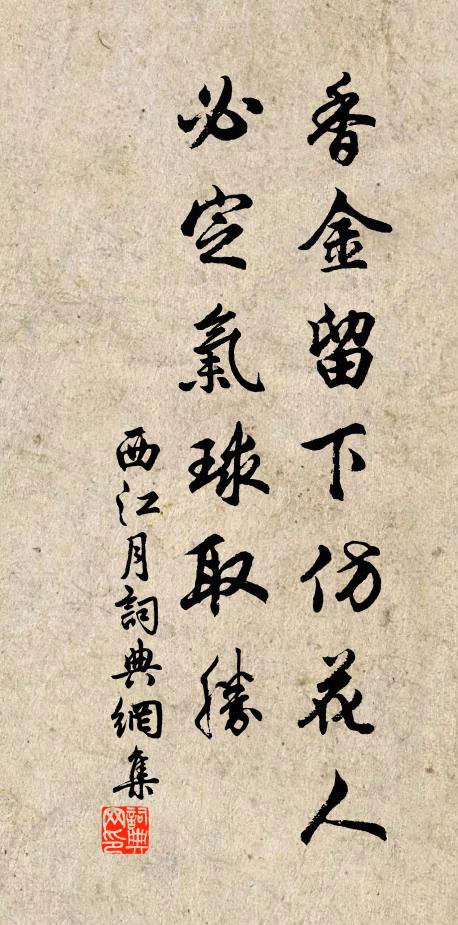 香金留下仿花人
必定氣球取勝
西江月詞典網集
詞典網印